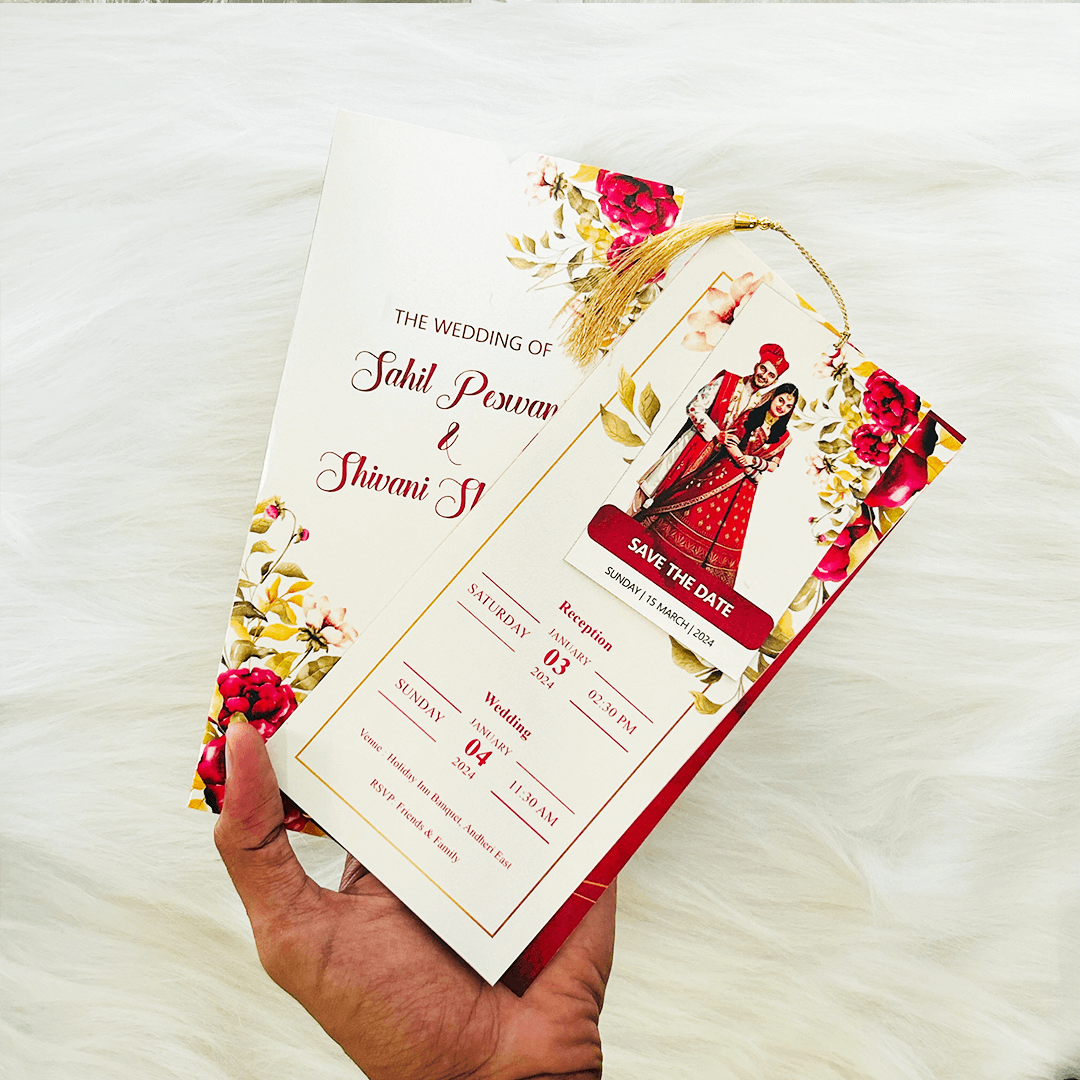 THE WEDDING OF
Sahil
&
Shivani
SAVE THE DATE
SUNDAY | 15 MARCH | 2024
Reception
SATURDAY
JANUARY
03
2024
02:30 PM
Wedding
SUNDAY
JANUARY
04
2024
11:30 AM
Venue : Holiday Inn Banquet, Andheri East
RSVP: Friends & Family